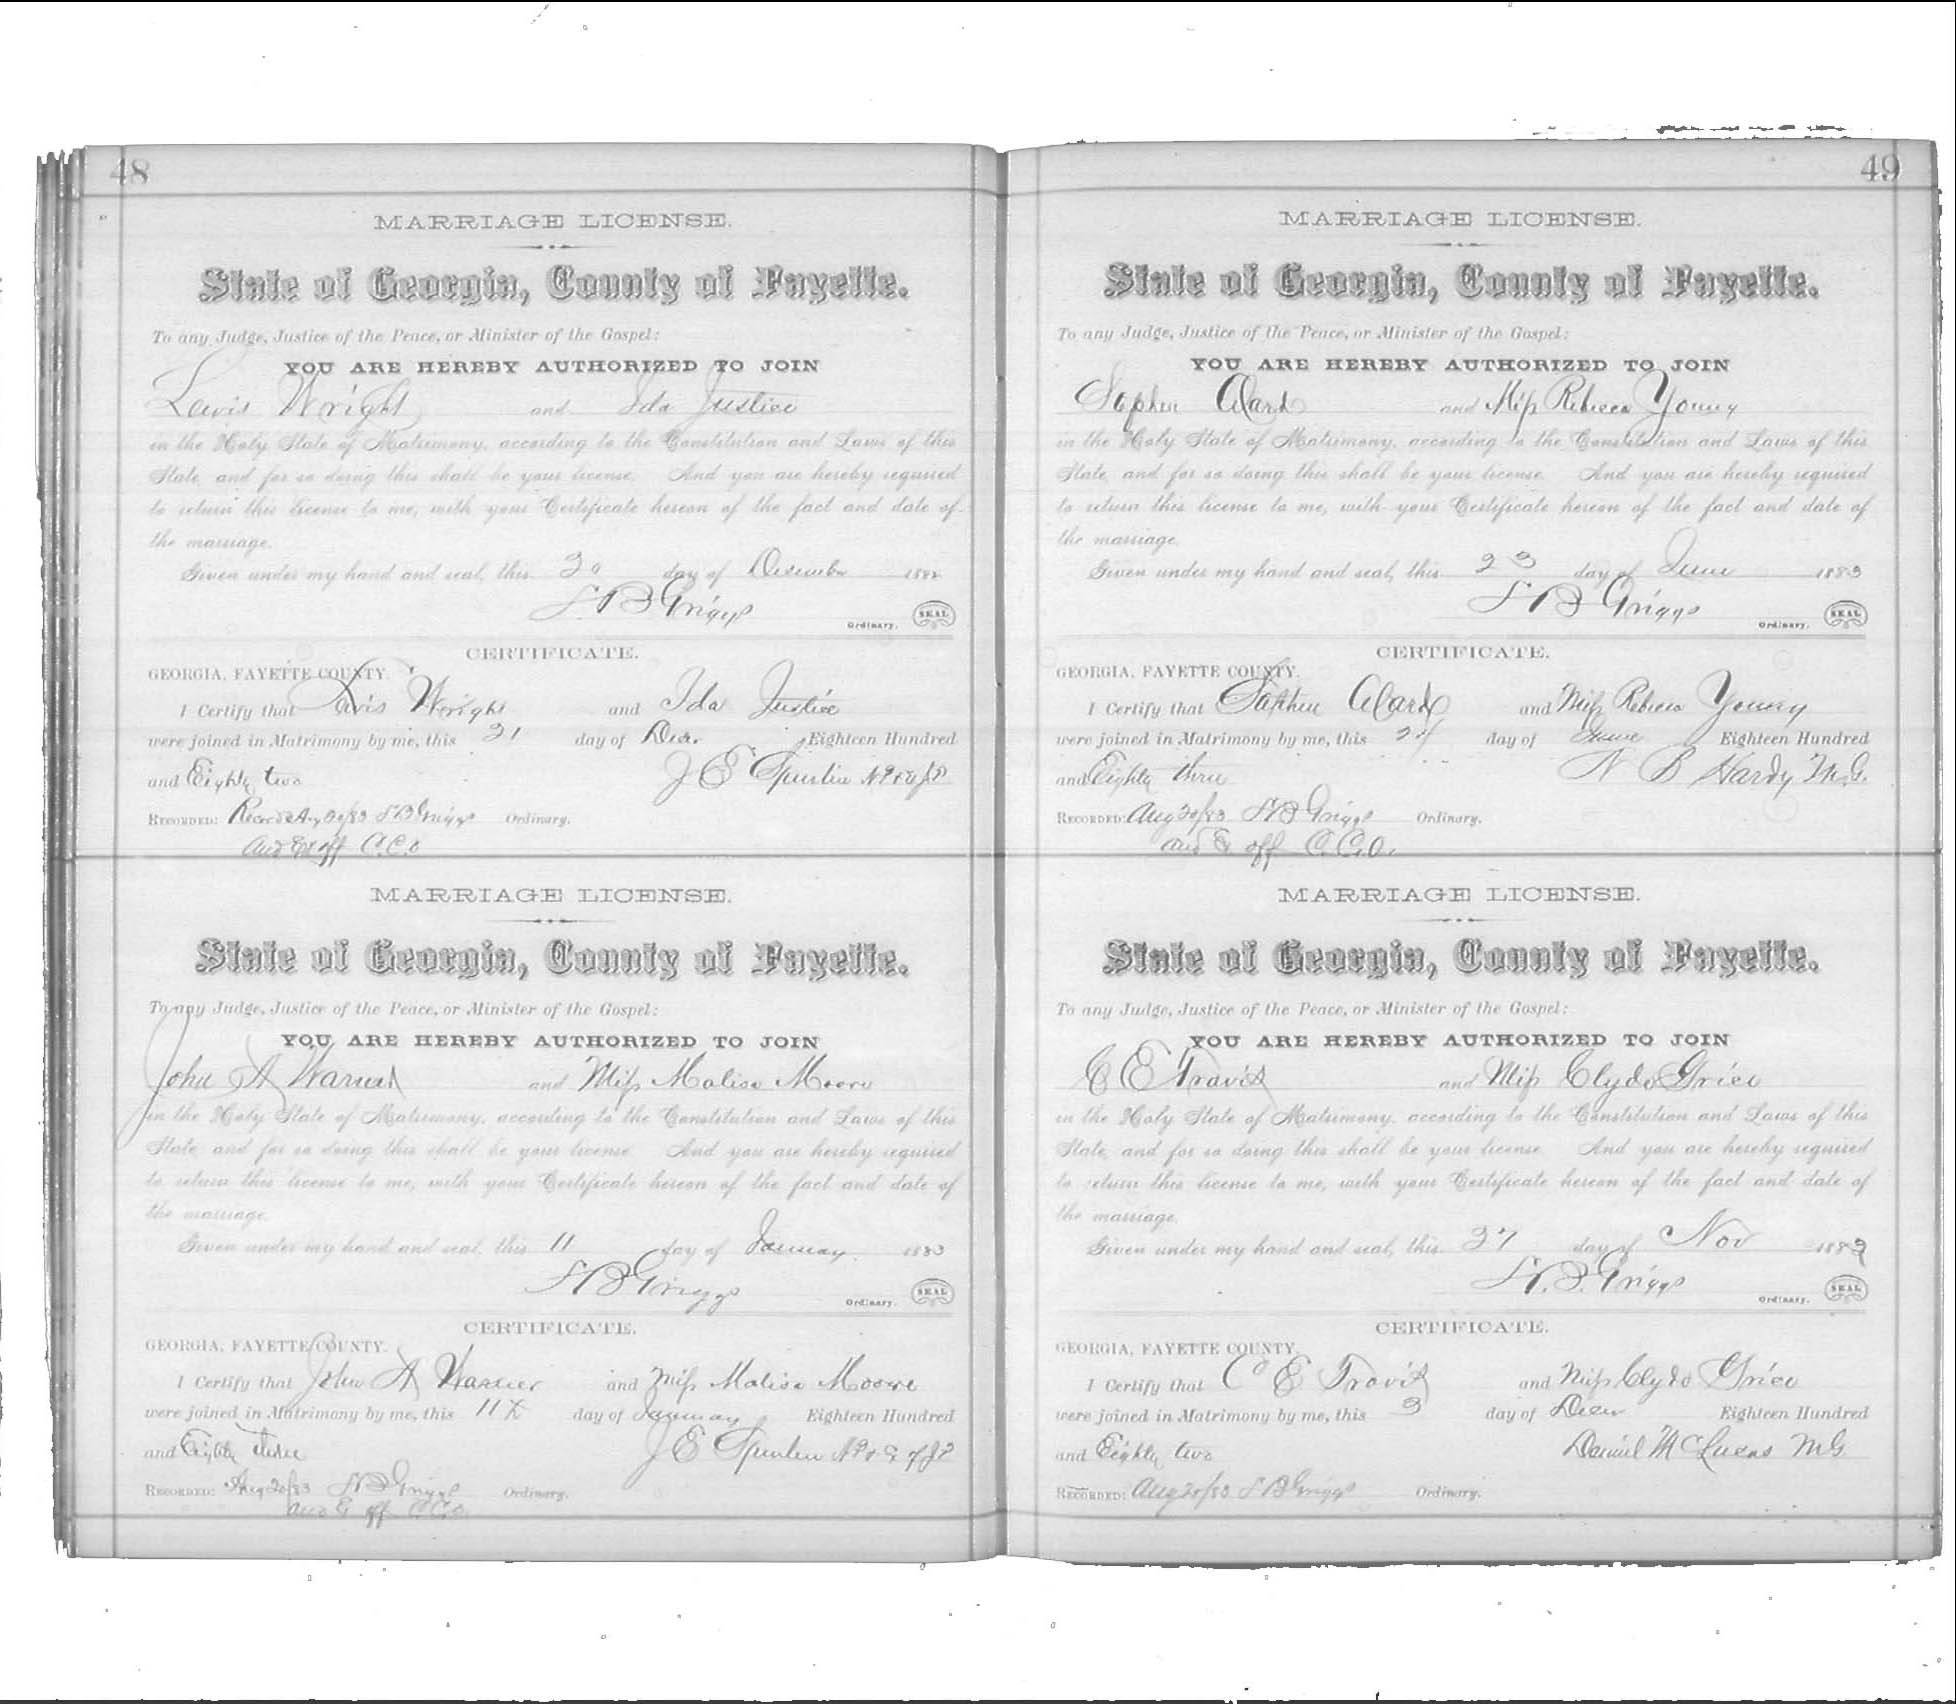 48
MARRIAGE LICENSE.
State of Georgia, County of Fayette.
To any Judge, Justice of the Peace, or Minister of the Gospel:
YOU ARE HEREBY AUTHORIZED TO JOIN
Lewis Wright and Ida Justice
in the Holy State of Matrimony, according to the Constitution and Laws of this
State, and for so doing this shall be your license. And you are hereby required
to return this license to me, with your Certificate hereon of the fact and date of
the marriage.
Given under my hand and seal, this 30 day of December 1882
S B Griggs
Ordinary. SEAL
CERTIFICATE.
GEORGIA, FAYETTE COUNTY.
I Certify that Wright and Ida Justice
were joined in Matrimony by me, this 31 day of Decr. Eighteen Hundred
and Eighty two J E
RECORDED: Aug 20/83 S B Griggs Ordinary.
and Ex off C.C.O
MARRIAGE LICENSE.
State of Georgia, County of Fayette.
To any Judge, Justice of the Peace, or Minister of the Gospel:
YOU ARE HEREBY AUTHORIZED TO JOIN
John A and Miss Malisa Moore
in the Holy State of Matrimony, according to the Constitution and Laws of this
State, and for so doing this shall be your license. And you are hereby required
to return this license to me, with your Certificate hereon of the fact and date of
the marriage.
Given under my hand and seal, this 11 day of January 1883
S B Griggs
Ordinary. SEAL
CERTIFICATE.
GEORGIA, FAYETTE COUNTY.
I Certify that John A and Miss Malisa Moore
were joined in Matrimony by me, this 11 day of January Eighteen Hundred
and Eighty three J E
RECORDED: Aug 20/83 S B Griggs Ordinary.
and E off C.C.O.
49
MARRIAGE LICENSE.
State of Georgia, County of Fayette.
To any Judge, Justice of the Peace, or Minister of the Gospel:
YOU ARE HEREBY AUTHORIZED TO JOIN
Stephen Clark and Miss Rebecca Young
in the Holy State of Matrimony, according to the Constitution and Laws of this
State, and for so doing this shall be your license. And you are hereby required
to return this license to me, with your Certificate hereon of the fact and date of
the marriage.
Given under my hand and seal, this 23 day of June 1883
S B Griggs
Ordinary. SEAL
CERTIFICATE.
GEORGIA, FAYETTE COUNTY.
I Certify that Stephen Clark and Miss Rebecca Young
were joined in Matrimony by me, this 24 day of June Eighteen Hundred
and Eighty three N B Hardy M.G.
RECORDED: Aug 20/83 S B Griggs Ordinary.
and E off C.C.O.
MARRIAGE LICENSE.
State of Georgia, County of Fayette.
To any Judge, Justice of the Peace, or Minister of the Gospel:
YOU ARE HEREBY AUTHORIZED TO JOIN
C E Travis and Miss Clyde Grice
in the Holy State of Matrimony, according to the Constitution and Laws of this
State, and for so doing this shall be your license. And you are hereby required
to return this license to me, with your Certificate hereon of the fact and date of
the marriage.
Given under my hand and seal, this 27 day of Nov 1882
S. B. Griggs
Ordinary. SEAL
CERTIFICATE.
GEORGIA, FAYETTE COUNTY.
I Certify that C E Travis and Miss Clyde Grice
were joined in Matrimony by me, this 3 day of Decr Eighteen Hundred
and Eighty two Daniel McLucas M G.
RECORDED: Aug 20/83 S B Griggs Ordinary.